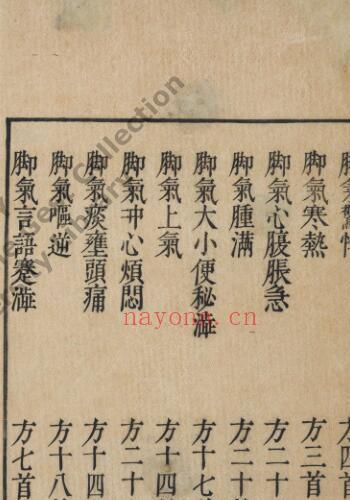 脚氣驚悸 方四首
脚氣寒熱 方三首
脚氣心腹脹急 方二十
脚氣腫滿 方二十
脚氣大小便秘澁 方十七
脚氣上氣 方十四
脚氣冲心煩悶 方二十
脚氣痰壅頭痛 方十四
脚氣嘔逆 方十八
脚氣言語蹇澁 方七首
nayona.cn
Collection